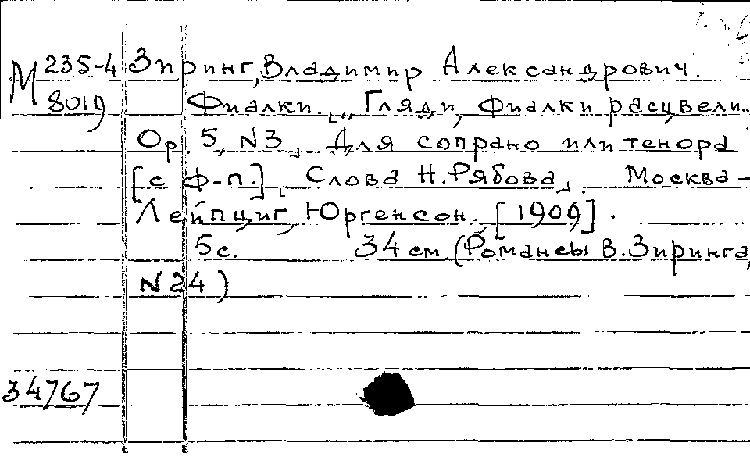 М 235-4 Зиринг, Владимир Александрович.
801д Фиалки. „Гляди, фиалки расцвели..
Ор. 5, N3. Для сопрано или тенора
[с ф-п.]. Слова Н. Рябова. Москва-
Лейпциг, Юргенсон. [1909].
5с. 34 см (Романсы В. Зиринга,
N 24)
34767